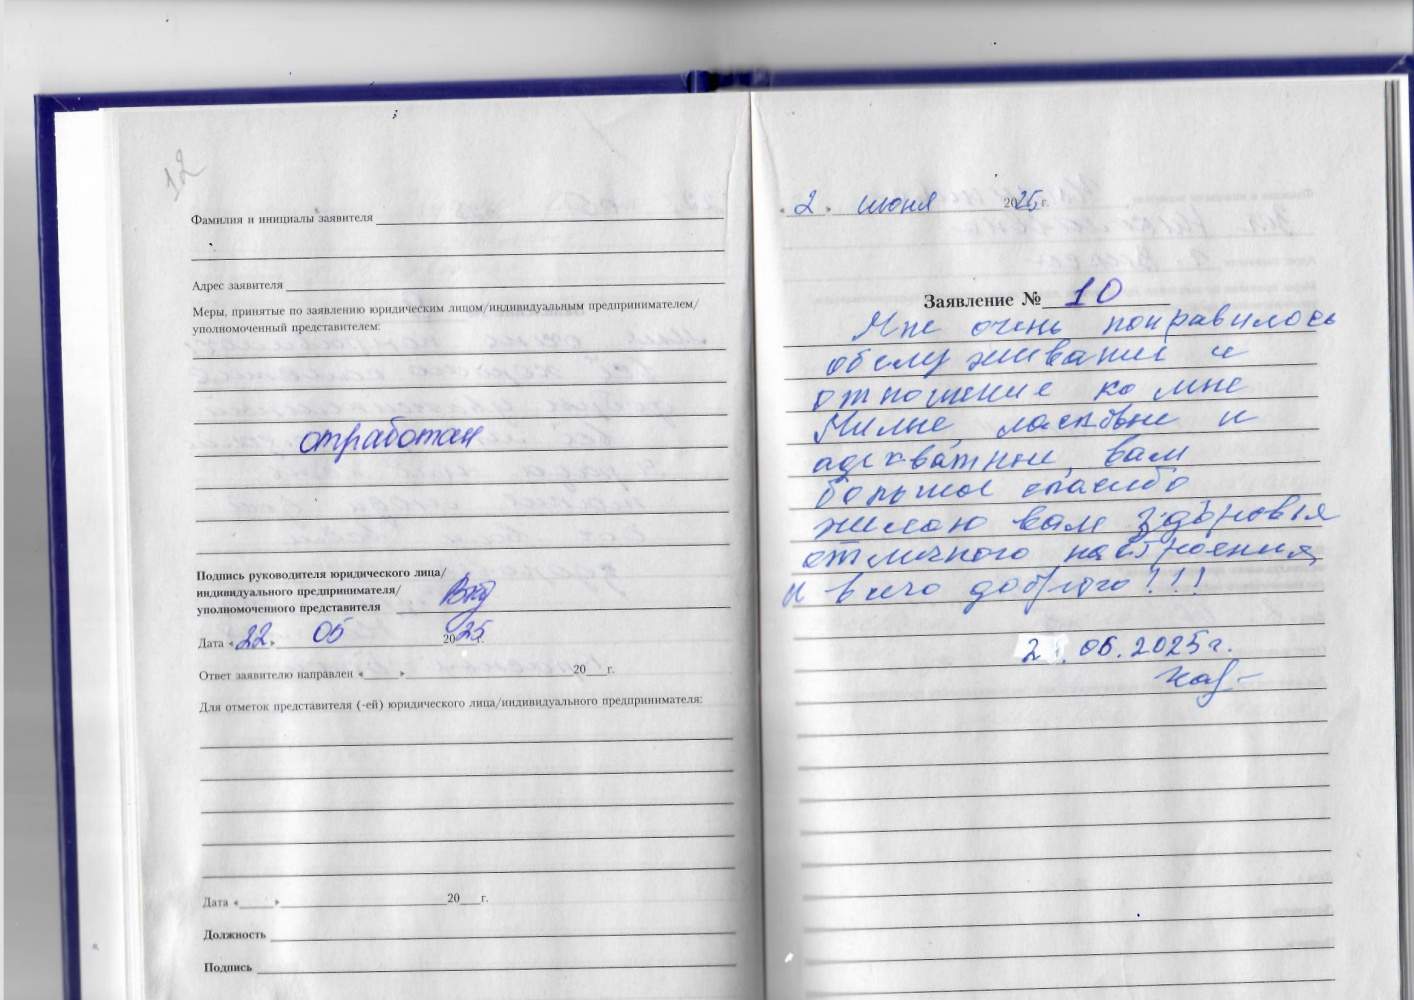 12
Фамилия и инициалы заявителя
Адрес заявителя
Меры, принятые по заявлению юридическим лицом/индивидуальным предпринимателем/
уполномоченный представителем:
отработан
Подпись руководителя юридического лица/
индивидуального предпринимателя/
уполномоченного представителя
Дата «22» 05 2025 г.
Ответ заявителю направлен «___» 20___г.
Для отметок представителя (-ей) юридического лица/индивидуального предпринимателя:
Дата «___» 20___г.
Должность
Подпись
«2» июня 2025 г.
Заявление № 10
Мне очень понравилось
обслуживание и
отношение ко мне
Милые, ласковые и
адекватные, вам
большое спасибо
желаю вам здоровья
отличного настроения
и всего доброго!!!
2 .06.2025г.